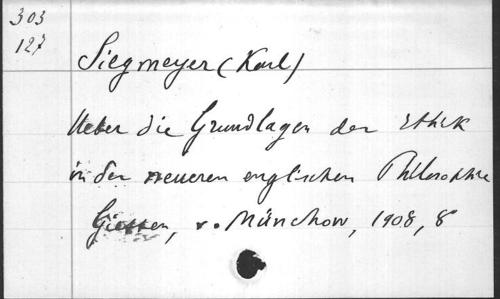 303
127
Siegmeyer (Karl)
Ueber die Grundlagen der Ethik
in der neueren englischen Philosophie
Giessen, v. Münchow, 1908, 8°